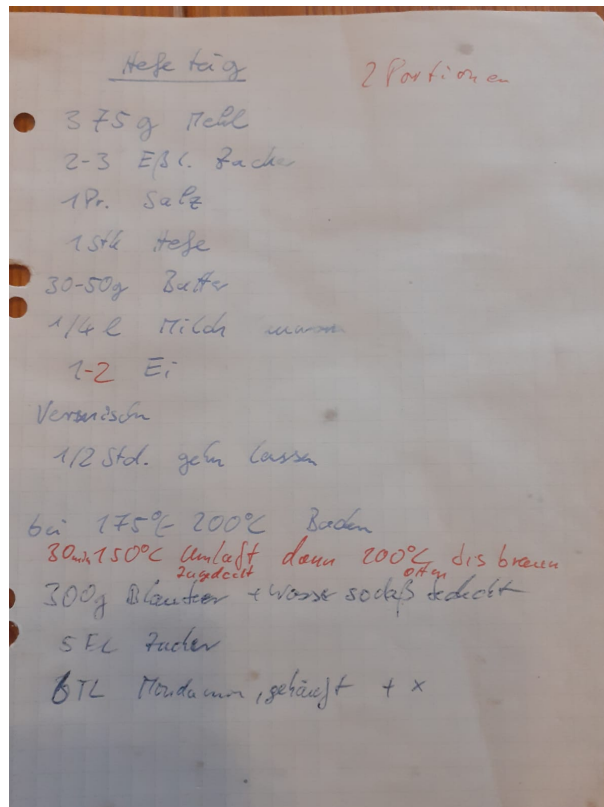 Hefeteig
2 Portionen
375g Mehl
2-3 Eßl. Zucker
1 Pr. Salz
1 Stk Hefe
30-50g Butter
1/4 l Milch warm
1-2 Ei
Vermischen
1/2 Std. gehn lassen
bei 175°C 200°C Backen
30min 150°C Umluft dann 200°C bis braun
zugedeckt offen
300g Blaubeer + Wasser sodaß bedeckt
5 EL Zucker
6 TL Mondamin, gehäuft + x